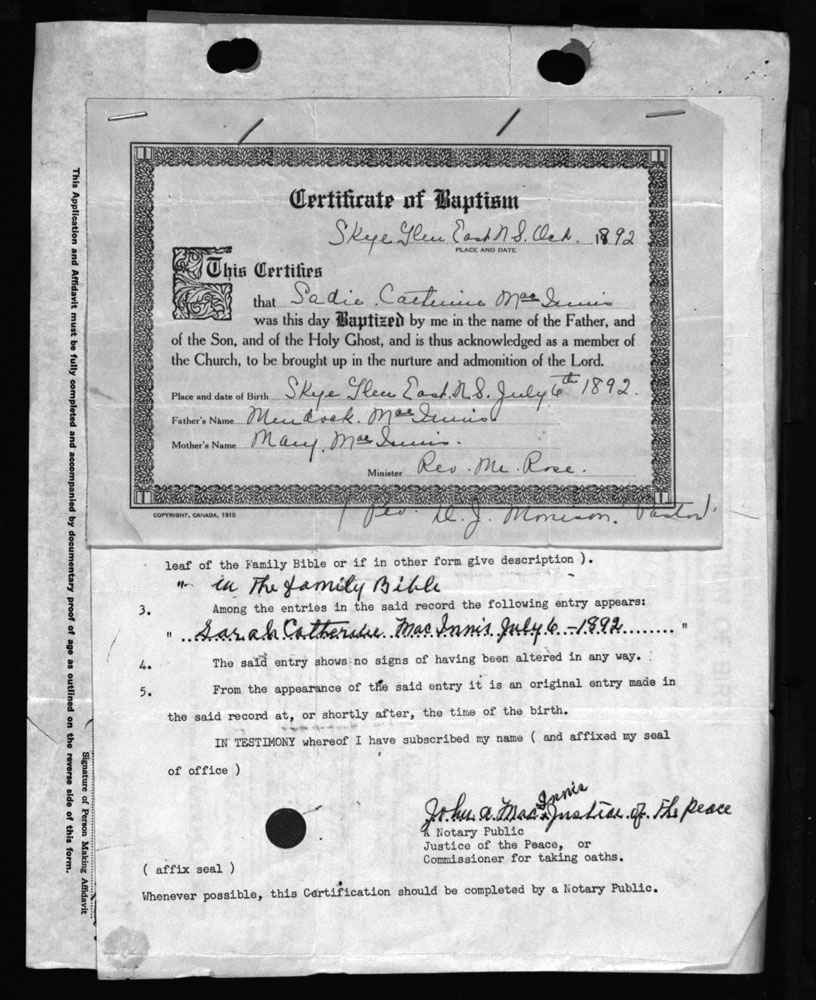 Certificate of Baptism
Skye Glen East N.S. Oct. 1892
PLACE AND DATE
This Certifies
that Sadie Catherine MacInnis
was this day Baptized by me in the name of the Father, and
of the Son, and of the Holy Ghost, and is thus acknowledged as a member of
the Church, to be brought up in the nurture and admonition of the Lord.
Place and date of Birth Skye Glen East. N.S. July 6th 1892.
Father's Name Murdock. MacInnis
Mother's Name Mary. MacInnis.
Minister Rev. Mc. Rose.
COPYRIGHT, CANADA, 1910
( Rev. D. J. Morrison. Pastor).
leaf of the Family Bible or if in other form give description ).
" in The family Bible
3. Among the entries in the said record the following entry appears:
" ..Sarah Catherine MacInnis. July 6 - 1892........ "
4. The said entry shows no signs of having been altered in any way.
5. From the appearance of the said entry it is an original entry made in
the said record at, or shortly after, the time of the birth.
IN TESTIMONY whereof I have subscribed my name ( and affixed my seal
of office )
John A. MacInnis Justice of The Peace
A Notary Public
Justice of the Peace, or
Commissioner for taking oaths.
( affix seal )
Whenever possible, this Certification should be completed by a Notary Public.
This Application and Affidavit must be fully completed and accompanied by documentary proof of age as outlined on the reverse side of this form.
Signature of Person Making Affidavit